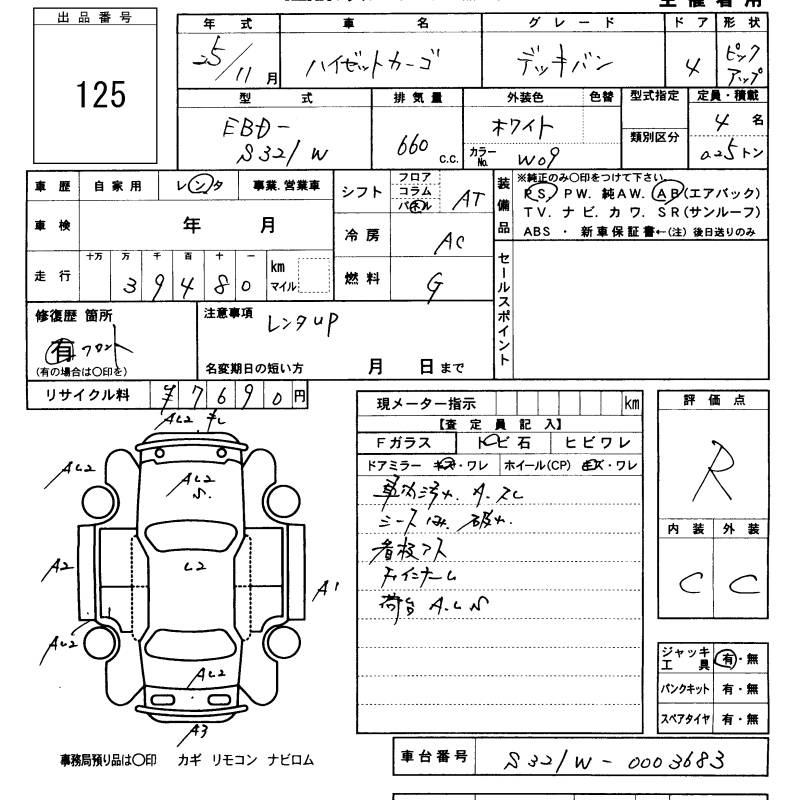 出品番号
125
年式 車名 グレード ドア 形状
25/11月 ハイゼットカーゴ デッキバン 4 ピックアップ
型式 排気量 外装色 色替 型式指定 定員・積載
EBD-S321W 660 C.C. ホワイト 類別区分 4名
カラーNo. W09 0.25トン
車歴 自家用 レンタ 事業.営業車
シフト フロア コラム パネル AT
装備品 ※純正のみ〇印をつけて下さい.
PS. PW. 純AW. AB(エアバック)
TV. ナビ. カワ. SR(サンルーフ)
ABS ・ 新車保証書←(注) 後日送りのみ
車検 年 月
冷房 AC
走行 十万 万 千 百 十 一 km マイル
39480
燃料 G
セールスポイント
修復歴 箇所
有 フロント
(有の場合は〇印を)
注意事項 レンタUP
名変期日の短い方 月 日まで
リサイクル料 ¥7690円
現メーター指示 km
評価点
R
【査定員記入】
Fガラス トビ石 ヒビワレ
ドアミラー キズ・ワレ ホイール(CP) キズ・ワレ
車内汚れ. A.スレ
シート 破れ.
看板アト
荷台 A.L.S
内装 外装
C C
AL2
AL2
AL2
S.
A2
L2
A1
AL2
AL2
A3
ジャッキ工具 有・無
パンクキット 有・無
スペアタイヤ 有・無
事務局預り品は〇印 カギ リモコン ナビロム
車台番号 S321W-0003683